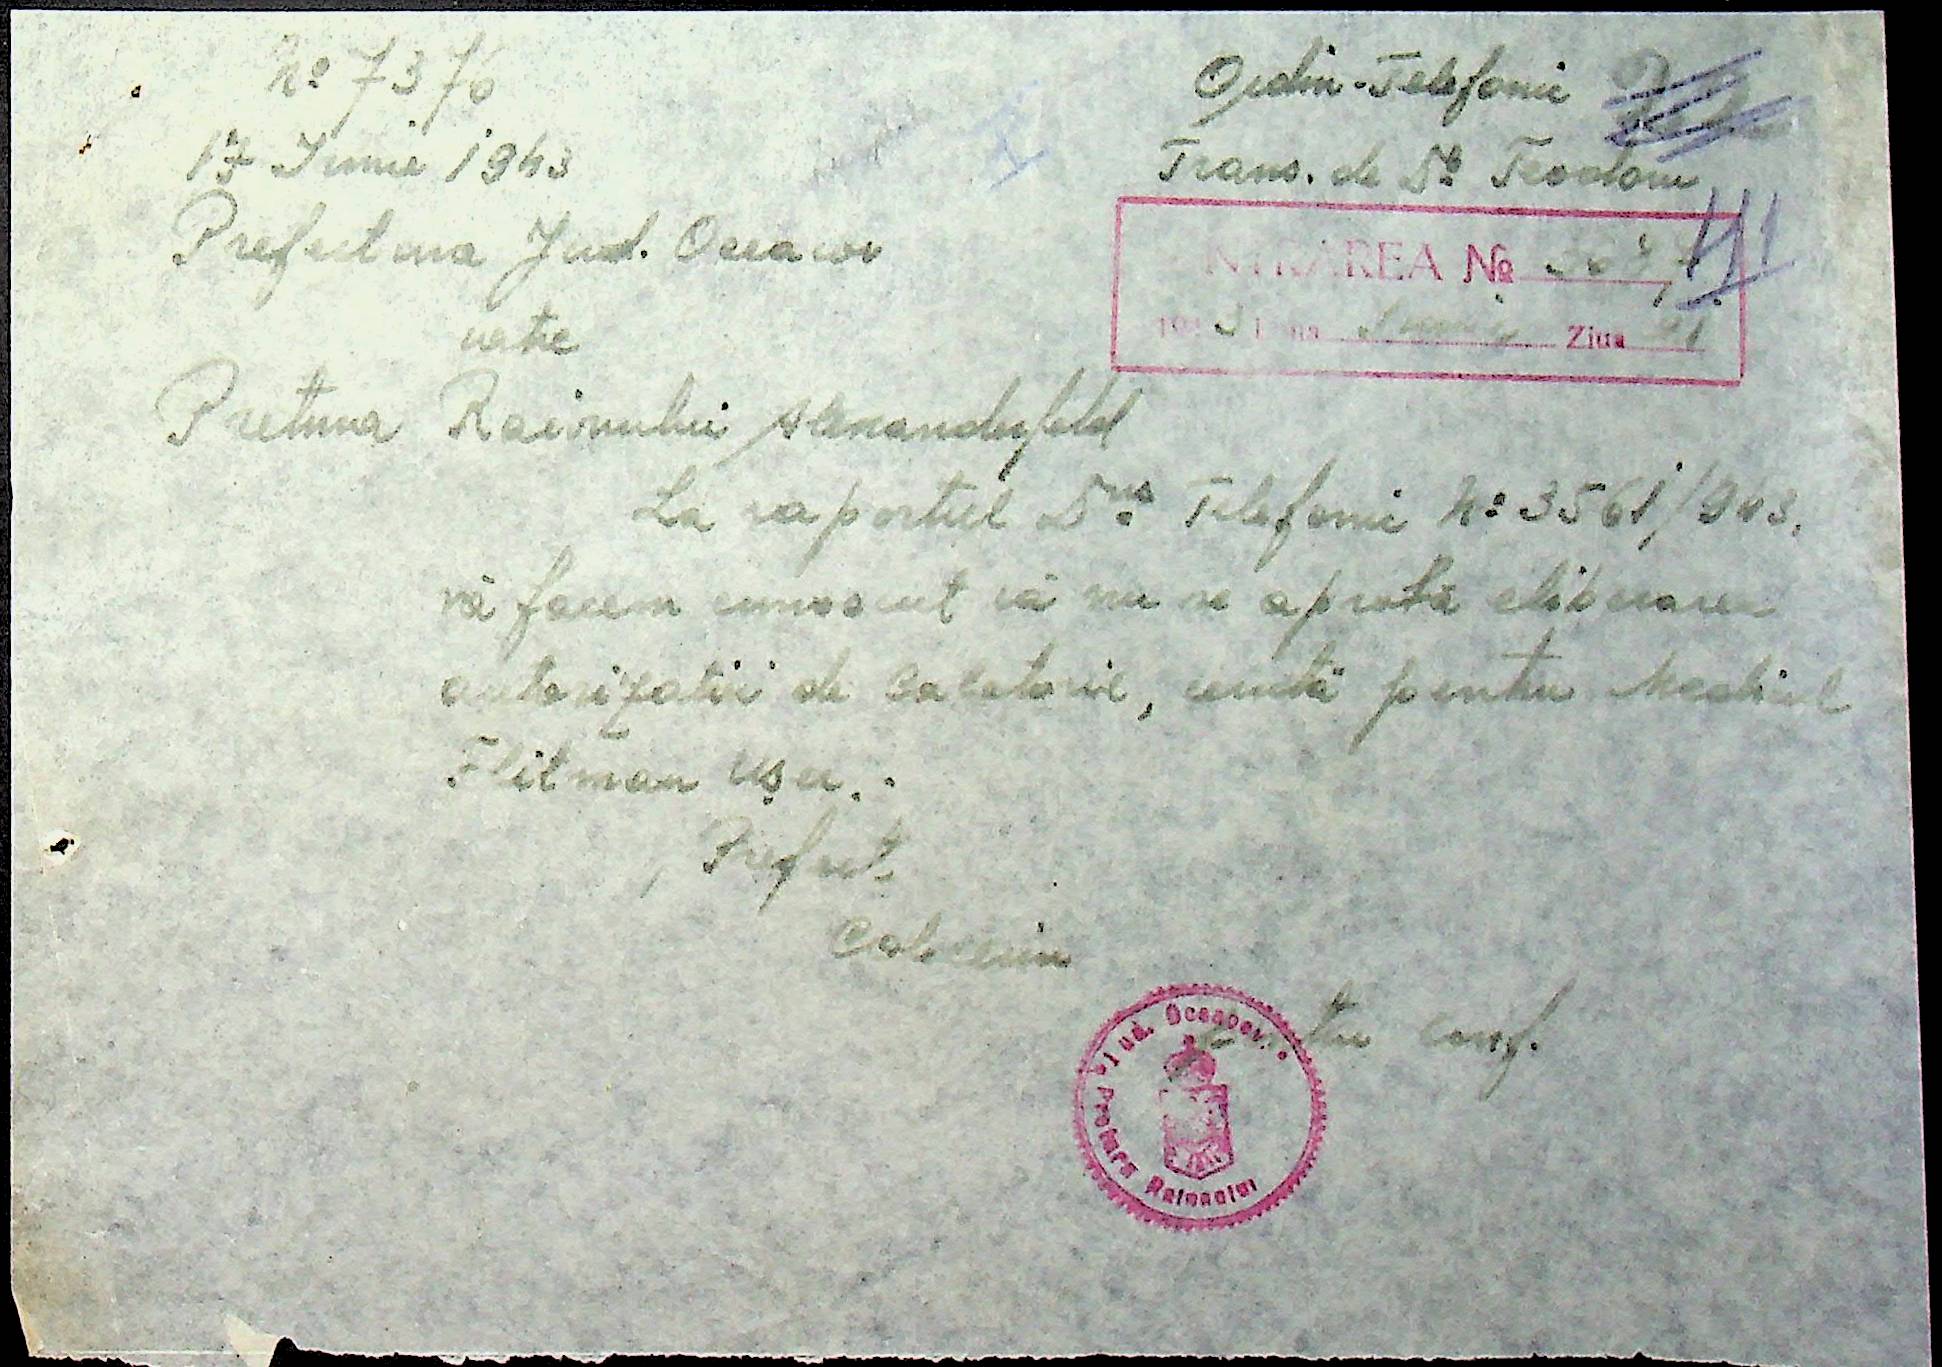 No 7376
17 Iunie 1943
Ordin-Telefonic
Trans. de Dl Teodoru
Prefectura Jud. Oceacov
INTRAREA No
1943 Luna Iunie Ziua 21
catre
Pretura Raionului Alexanderfeld
La raportul Dvs. Telefonic No 3561/943.
vă facem cunoscut că nu se aprobă eliberarea
autorizatiei de calatorie, cerută pentru
Flitman Ușer.
Prefect.
Colonel
Pentru conf.
Jud. Oceacov
Pretura Raionului